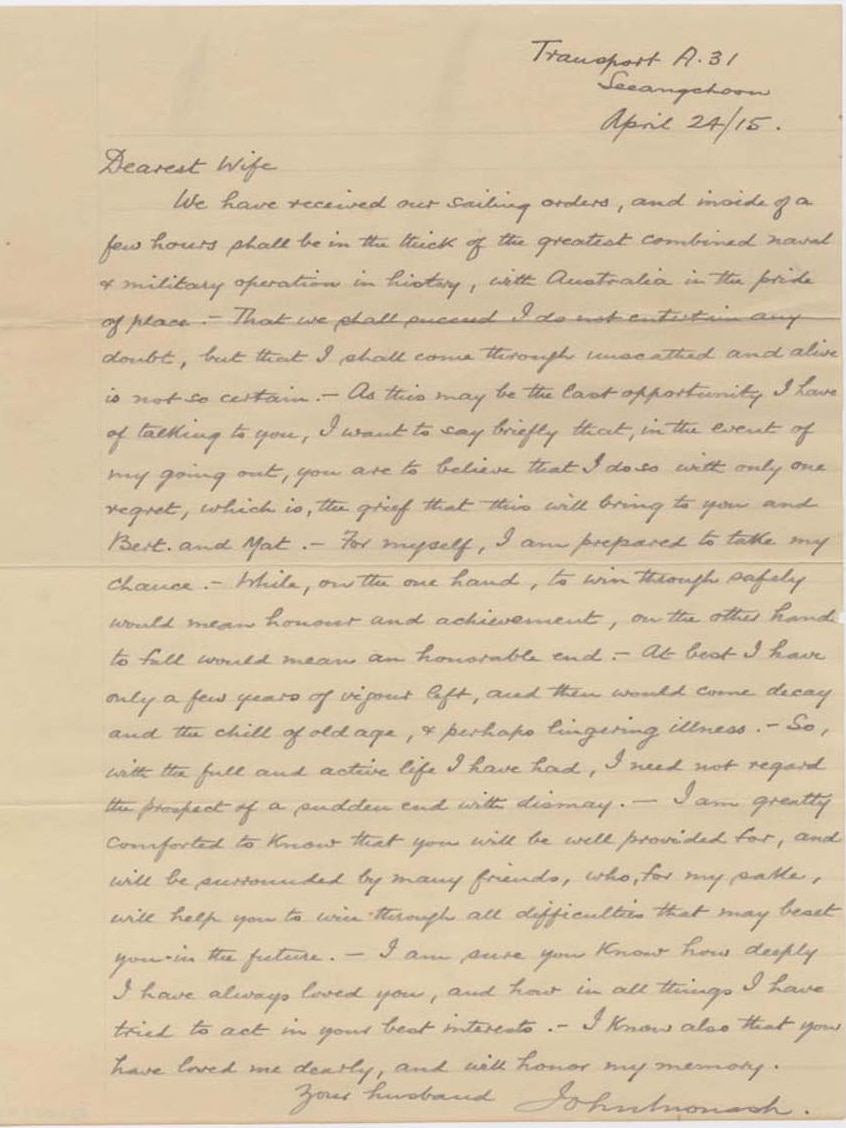 Transport A.31
Seeangchoon
April 24/15.
Dearest Wife
We have received our sailing orders, and inside of a
few hours shall be in the thick of the greatest combined naval
& military operation in history, with Australia in the pride
of place. – That we shall succeed I do not entertain any
doubt, but that I shall come through unscathed and alive
is not so certain. – As this may be the last opportunity I have
of talking to you, I want to say briefly that, in the event of
my going out, you are to believe that I do so with only one
regret, which is, the grief that this will bring to you and
Bert. and Mat. – For myself, I am prepared to take my
chance. – While, on the one hand, to win through safely
would mean honour and achievement, on the other hand
to fall would mean an honorable end. – At best I have
only a few years of vigour left, and then would come decay
and the chill of old age, & perhaps lingering illness. – So,
with the full and active life I have had, I need not regard
the prospect of a sudden end with dismay. – I am greatly
comforted to know that you will be well provided for, and
will be surrounded by many friends, who, for my sake,
will help you to win through all difficulties that may beset
you in the future. – I am sure you know how deeply
I have always loved you, and how in all things I have
tried to act in your best interests. – I know also that you
have loved me dearly, and will honor my memory.
Your husband John Monash.